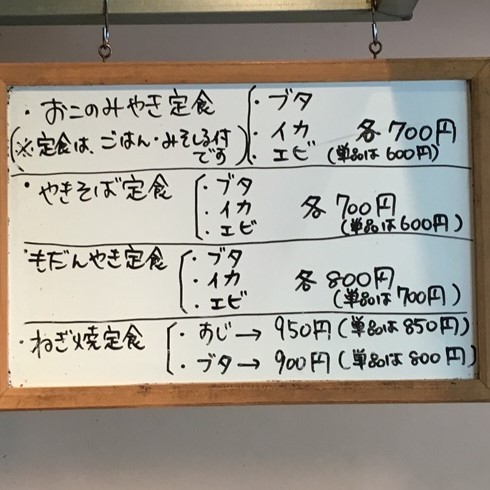 ・おこのみやき定食 ・ブタ
(※定食は、ごはん・みそしる付です) ・イカ 各700円
・エビ (単品は600円)
・やきそば定食 ・ブタ
・イカ 各700円
・エビ (単品は600円)
・もだんやき定食 ・ブタ
・イカ 各800円
・エビ (単品は700円)
・ねぎ焼定食 ・すじ→950円(単品は850円)
・ブタ→900円(単品は800円)